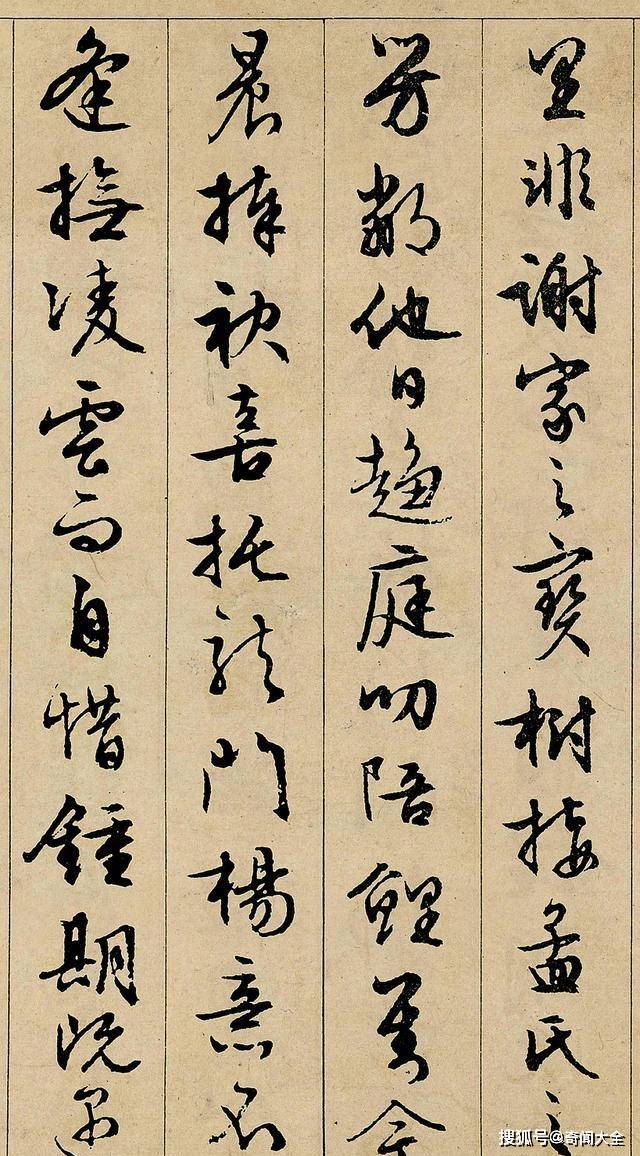 里非謝家之寶樹接孟氏之
芳鄰他日趨庭叨陪鯉對今
晨捧袂喜托龍門楊意不
逢撫凌雲而自惜鍾期既遇
搜狐号@奇闻大全